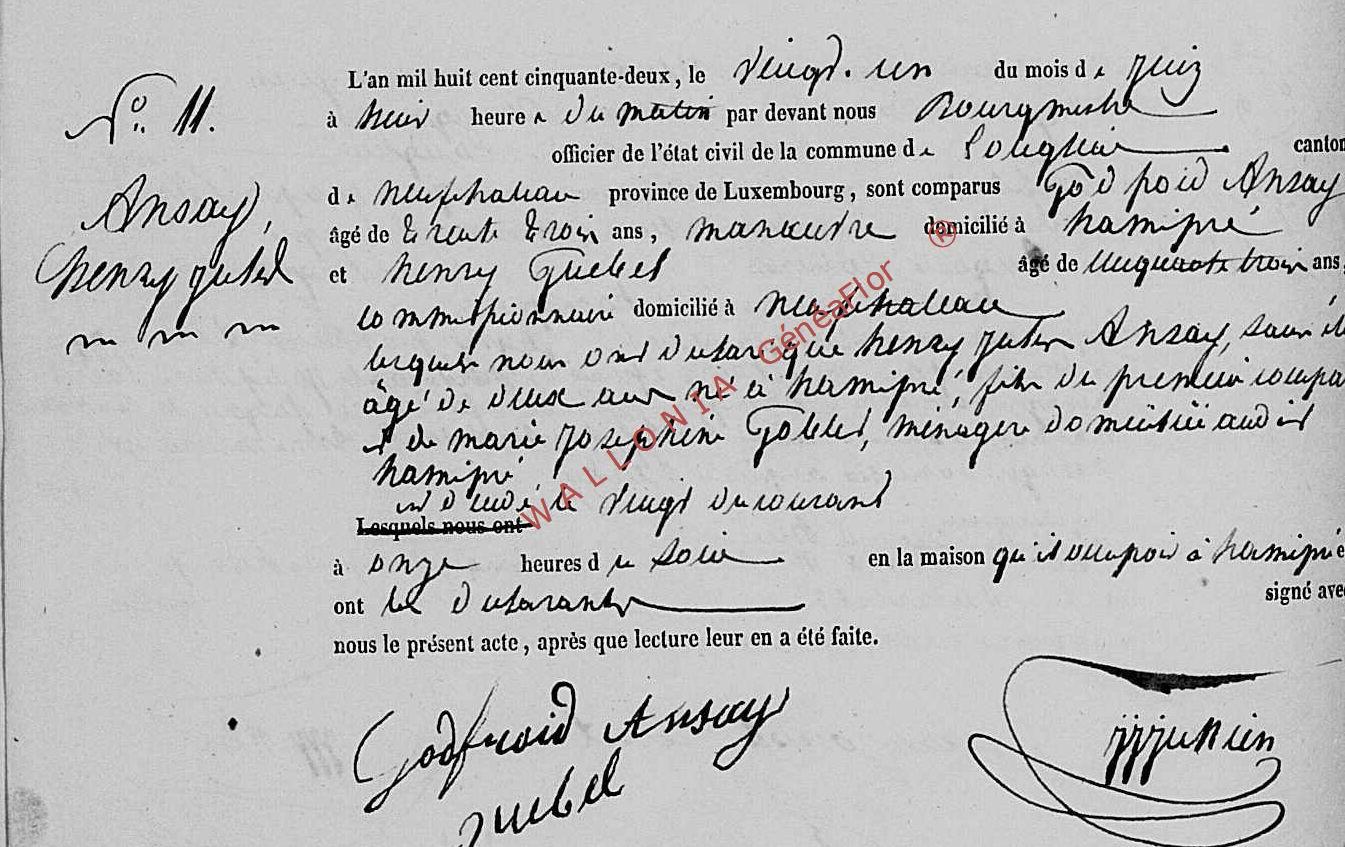 N° 11.
Ansay,
henry julien
L'an mil huit cent cinquante-deux, le vingt-un du mois de juin
à huit heures du matin par devant nous Bourgmestre
officier de l'état civil de la commune de Longlier canton
de neufchateau province de Luxembourg, sont comparus Godfroid Ansay
âgé de trente trois ans, manœuvre domicilié à hamipré
et henry Guebel âgé de cinquante trois ans,
commissionnaire domicilié à neufchateau
lesquels nous ont déclaré que henry julien Ansay,
âgé de deux ans né à hamipré, fils du premier compa
et de marie josephine Goblet, ménagere domiciliée audit
hamipré,
est décédé le vingt du courant
Lesquels nous ont
à onze heures du soir en la maison qu'il occupoit à hamipré e
ont les déclarants signé avec
nous le présent acte, après que lecture leur en a été faite.
Godfroid Ansay
guebel
WALLONIA GénéaFlor ®